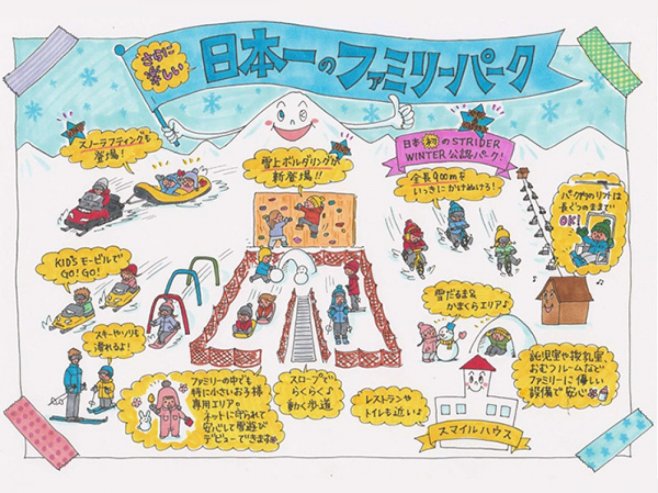 さらに
楽しい
日本一のファミリーパーク
スノーラフティングも
登場!
雪上ボルダリングが
新登場!!
日本初のSTRIDER
WINTER公認パーク!
全長900mを
いっきにかけぬけろ!
パーク内のリフトは
長ぐつのままで
OK!
KID'Sモービルで
GO!GO!
スキーやソリも
滑れるよ!
ファミリーの中でも
特に小さいお子様
専用エリア。
ネットに守られて
安心して雪遊び
デビューできます
スロープで
らくらく♪
動く歩道
雪だるま&
かまくらエリア♪
レストランや
トイレも近いよ♪
スマイルハウス
託児室や授乳室、
おむつルームなど
ファミリーに優しい
設備で安心